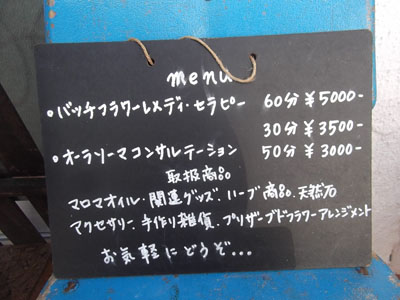 menu
・バッチフラワーレメディ・セラピー 60分 ¥5000-
30分 ¥3500-
・オーラソーマコンサルテーション 50分 ¥3000-
取扱商品
マロマオイル・開運グッズ、ハーブ商品、天然石
アクセサリー、手作り雑貨、プリザーブドフラワーアレンジメント
お気軽にどうぞ...